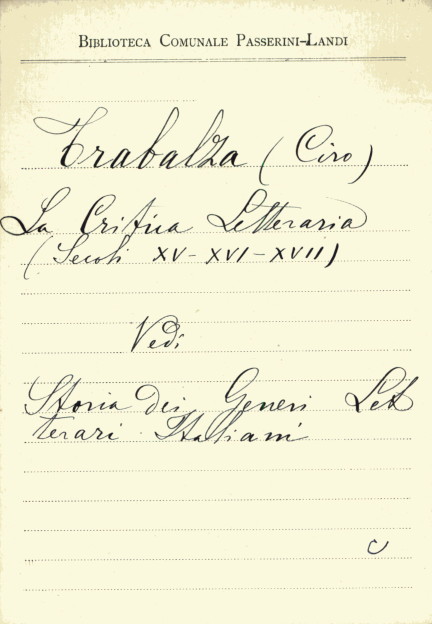 BIBLIOTECA COMUNALE PASSERINI-LANDI
Trabalza (Ciro)
La Critica Letteraria
(Secoli XV-XVI-XVII)
Vedi
Storia dei Generi Let
terari Italiani
C